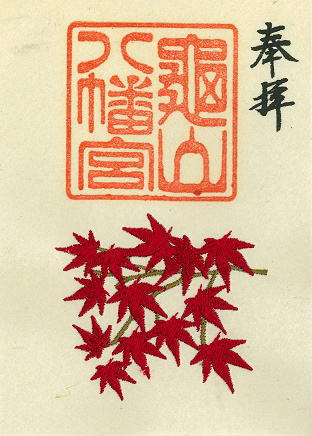 奉拝
龜山
八幡宮